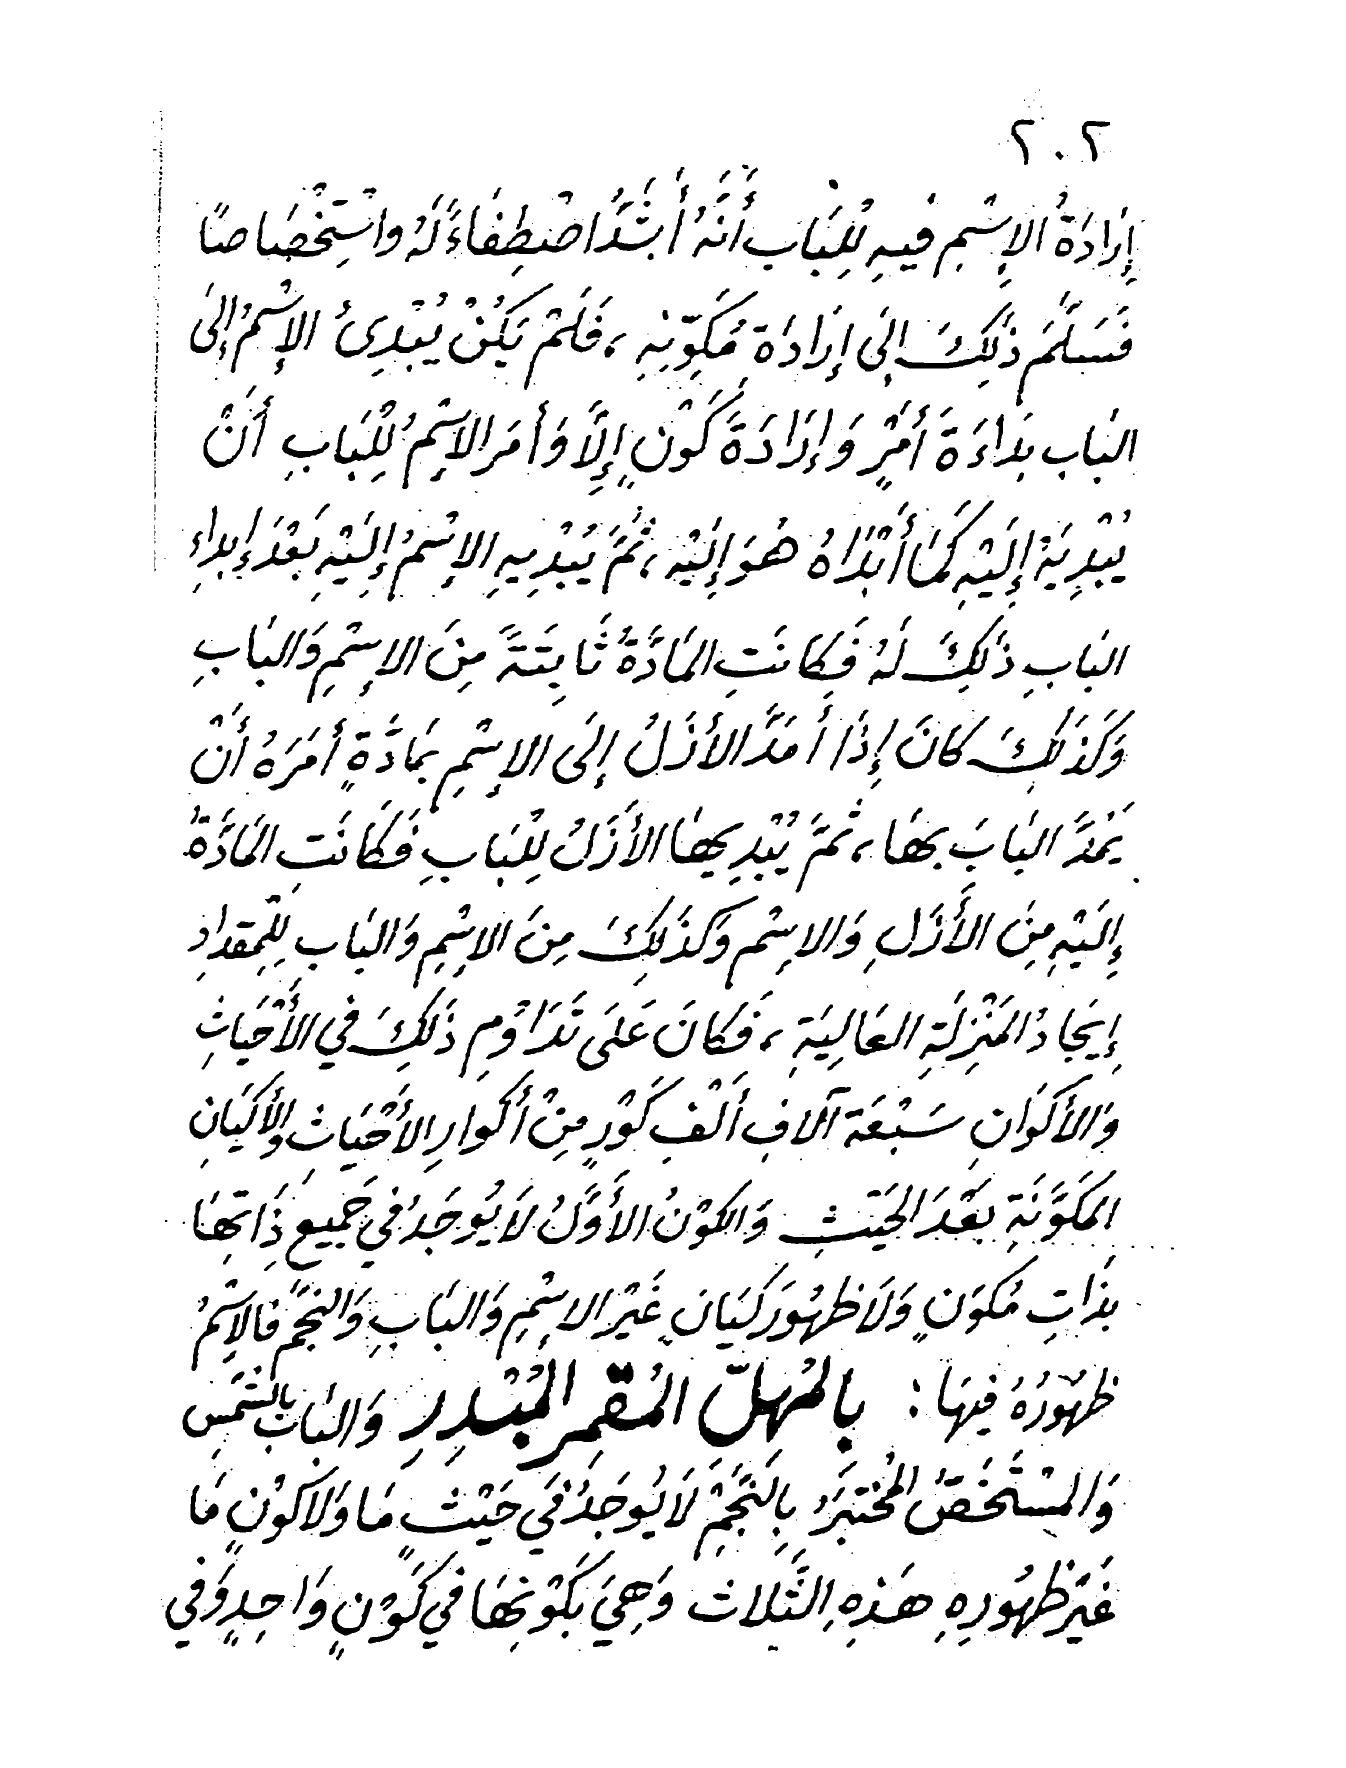 ٢٠٢
إِرَادَةُ الإِسْمِ فيهِ لِلْبَابِ أَنَّهُ أَشَدُّ اصْطِفَاءً لَهُ واسْتِخْصَاصًا
فَسَلَّمَ ذَلِكَ إلى إرَادَاةِ مُكَوِّنِهِ ، فَلَمْ يَكُنْ يُبْدِئُ الإِسْمُ إلى
البَاب بَدَاءَةَ أَمْرٍ وَإرَادَةَ كَوْنٍ إِلَّا وَأمَر الإسْمُ لِلْبَابِ أَنْ
يُبْدِيَهُ إِلَيْهِ كَمَا أَبْدَاهُ هُوَ إِلَيْهِ ، ثُمَّ يُبْدِيهِ الإِسْمُ إِلَيْهِ بَعْدَ إبداءِ
البَابِ ذَلِكَ لَهُ فَكَانَتِ المَادَّةُ ثَابِتَةً مِنَ الإِسْمِ وَالبَابِ
وَكَذَلِكَ كانَ إِذَا أَمَدَّ الأزَلُ إلَى الإسْمِ بِمَادَّةٍ أمَرَهُ أَنْ
يَمُدَّ البَابَ بِهَا ، ثُمَّ يُبْدِيهَا الأَزَلُ لِلْبَابِ فَكَانَتِ المَادَّةُ
إِلَيْهِ مِنَ الأَزَلِ وَالإسْمِ وَكَذَلِكَ مِنَ الإسْمِ وَالبَابِ لِلمِقدَادِ
إِيجَادُ المَنْزِلَةِ العَالِيَةِ ، فَكَانَ عَلَى تَدَاوُمِ ذَلِكَ في الأَحْيَاثِ
وَالأكْوَانِ سَبْعَة آلافِ أَلْفِ كَوْرٍ مِنْ أَكْوارِ الأَحْيَاثِ والأكْيَانِ
المَكَوَّنَةِ بَعْدَ الحَيْثِ وَالكَوْنُ الأَوَّلُ لَا يُوجَدُ في جَمِيعِ ذَاتِهَا
بِذَاتِ مُكَوَنٍ وَلَا ظهُورَ كَيَانٍ غَيْرَ الإسْمِ وَالبَابِ وَالنَجْمِ فَالإسْمُ
ظهُورُهُ فِيهَا : بِالمُهِلِّ المُقْمِرِ المُبْدِرِ وَالبَابُ بِالشَّمْسِ
وَالمسْتَخَصُّ المُخْتبَرُ بِالنَجْمِ لَا يُوجَدُ في حَيْثٍ مَا وَلَا كَوْنٍ مَا
غَيْرَ ظهُورِهِ هَذِهِ الثَّلَاث وَهِيَ بِكَوْنِهَا في كَوْنٍ وَاحِدٍ وَفي